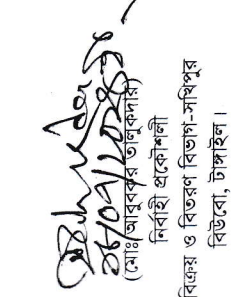 (মোঃ আবুবকর তালুকদার)
নির্বাহী প্রকৌশলী
বিক্রয় ও বিতরণ বিভাগ-সখিপুর
বিউবো, টাঙ্গাইল।